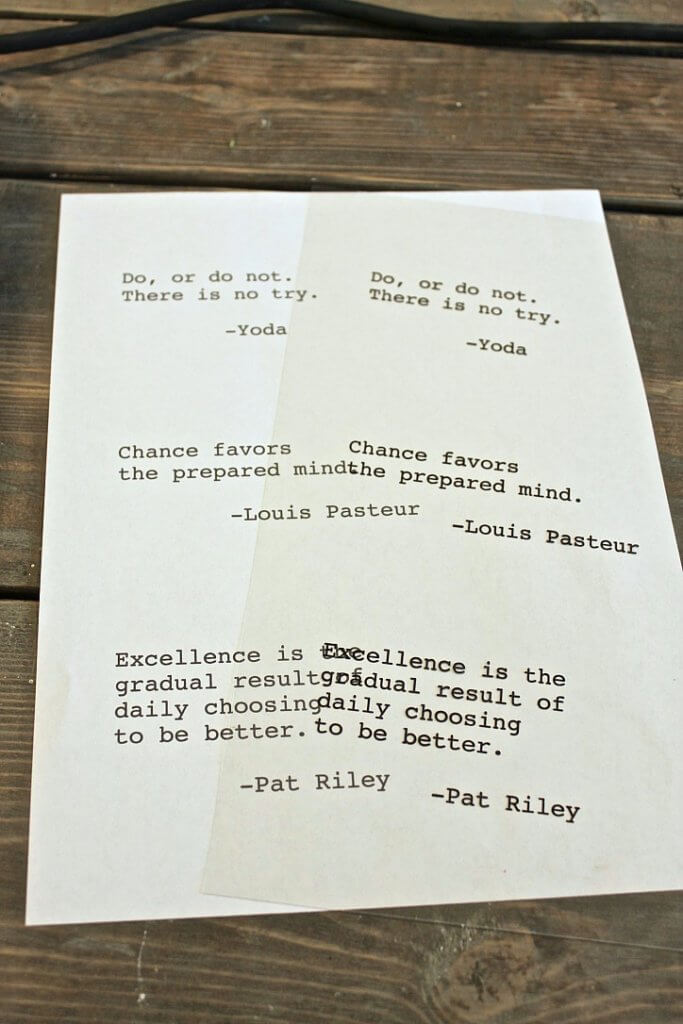 Do, or do not.
There is no try.
-Yoda
Chance favors
the prepared mind.
-Louis Pasteur
Excellence is the
gradual result of
daily choosing
to be better.
-Pat Riley
Do, or do not.
There is no try.
-Yoda
Chance favors
the prepared mind.
-Louis Pasteur
Excellence is the
gradual result of
daily choosing
to be better.
-Pat Riley